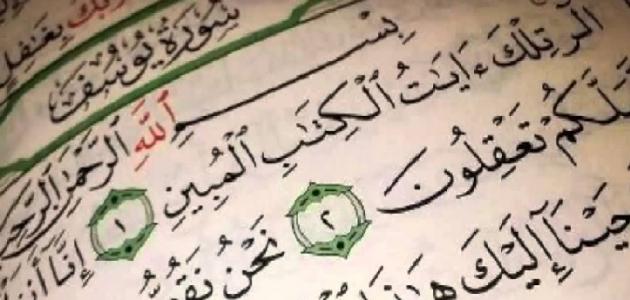 رَبُّكَ بِغَٰفِلٍ
سُورَةُ يُوسُفَ
بِسْمِ ٱللَّهِ ٱلرَّحْمَٰنِ ٱلرَّحِيمِ
الٓر تِلْكَ ءَايَٰتُ ٱلْكِتَٰبِ ٱلْمُبِينِ ١ إِنَّآ
لَّكُمْ تَعْقِلُونَ ٢ نَحْنُ نَقُصُّ
حَيْنَآ إِلَيْكَ هَٰذَا